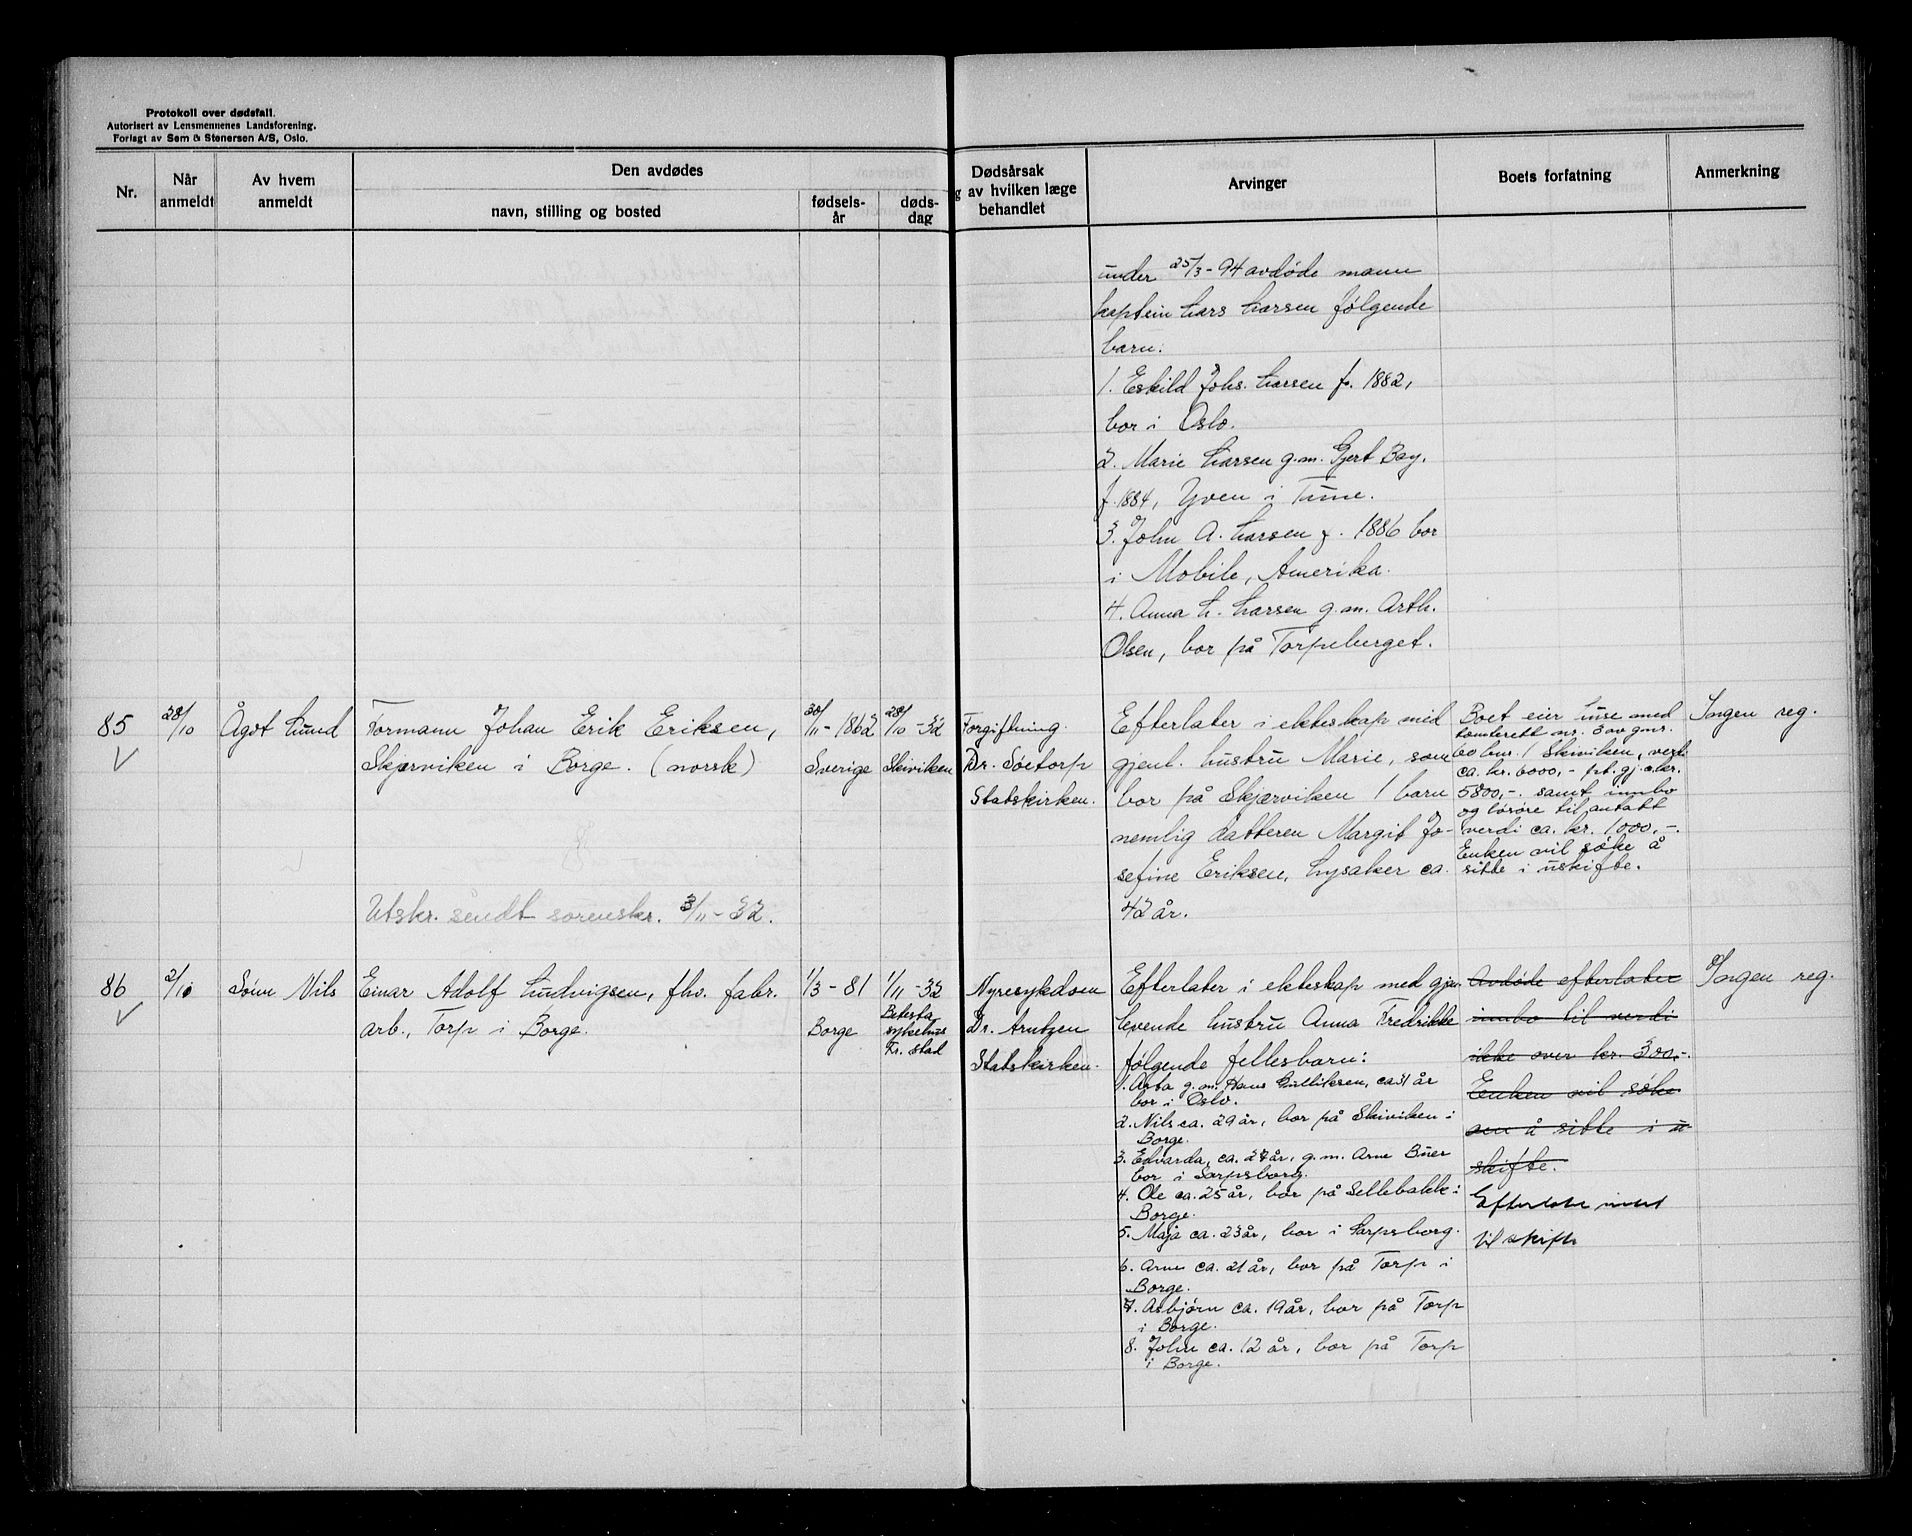 Protokoll over dødsfall.
Autorisert av Lensmennenes Landsforening.
Forlagt av Sem & Stenersen A/S, Oslo.
Nr.
Når anmeldt
Av hvem anmeldt
Den avdødes
navn, stilling og bosted
fødsels-
år
døds-
dag
Dødsårsak
g av hvilken læge
behandlet
Arvinger
Boets forfatning
Anmerkning
under 25/3-94 avdøde mann
kaptein Lars Larsen følgende
barn:
1. Eskild Johs. Larsen f. 1882,
bor i Oslo.
2. Marie Larsen g.m. Gjert Bay,
f. 1884, Yven i Tune.
3. John A. Larsen f. 1886 bor
i Mobile, Amerika.
4. Anna L. Larsen g.m. Arth.
Olsen, bor på Torpeberget.
85
28/10
Ågot Lund
Formann Johan Erik Eriksen,
Skjærviken i Borge. (norsk)
Utskr. sendt sorenskr. 3/11-32.
30/11-1862
Sverige
28/10-32
Skiviken
Forgiftning.
Dr. Søetorp
Statskirken.
Efterlater i ekteskap med
gjenl. hustru Marie, som
bor på Skjærviken 1 barn
nemlig datteren Margit Jo-
sefine Eriksen, Lysaker ca.
42 år.
Boet eier huse med
tomterett nr. 3 av gnr.
60 bnr. 1 Skiviken, verdi
ca. kr. 6000,- pt. gj. c. kr.
5800,-. samt innbo
og løsøre til antatt
verdi ca. kr. 1000,-.
Enken vil søke å
sitte i uskifte.
Ingen reg.
86
2/10
Sønn Nils
Einar Adolf Ludvigsen, fhv. fabr.
arb., Torp i Borge.
1/3-81
Borge
1/11-32
Betesta
sykehus
Fr. stad
Nyresykdom
Dr. Arntzen
Statskirken.
Efterlater i ekteskap med gjen-
levende hustru Anna Fredrikke
følgende fellesbarn:
1. Asta g.m. Hans Gulliksen, ca 31 år
bor i Oslo.
2. Nils ca. 29 år, bor på Skiviken i
Borge.
3. Edvarda, ca. 27 år, g.m. Arne Buer
bor i Sarpsborg.
4. Ole ca. 25 år, bor på Sellebakk i
Borge.
5. Maja ca. 23 år, bor i Sarpsborg.
6. Arne ca. 21 år, bor på Torp i
Borge.
7. Asbjørn ca. 19 år, bor på Torp
i Borge.
8. John ca. 12 år, bor på Torp
i Borge.
Avdøde efterlater
innbo til verdi
ikke over kr. 300,-.
Enken vil søke
om å sitte i u
skifte.
Efterlot intet
til skifte
Ingen reg.